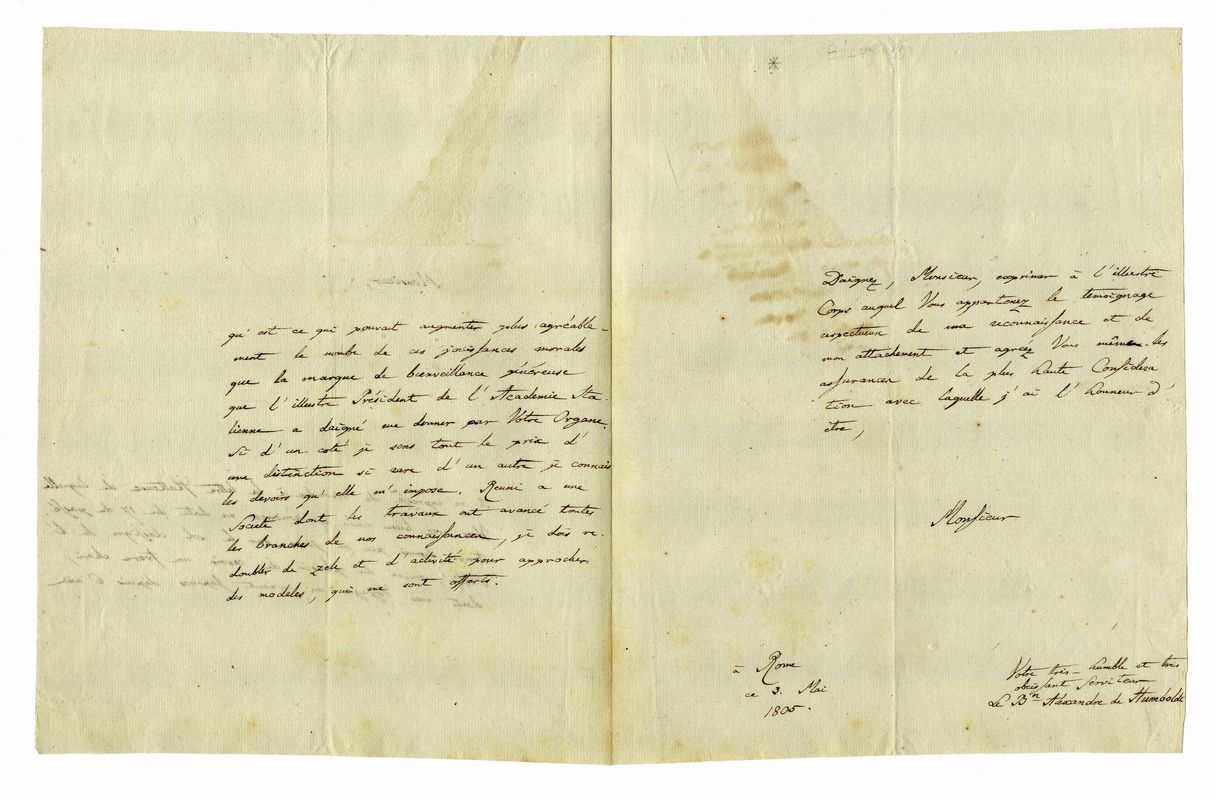 qu'est ce qui pouvait augmenter plus agréable-
ment le nombre de ces jouissances morales
que la marque de bienveillance généreuse
que l'illustre Président de l'Academie Ita-
lienne a daigné me donner par Votre Organe.
Si d'un coté je sens tout le prix d'
une distinction si rare d'un autre je connais
les devoirs qu'elle m'impose. Reuni a une
Societé dont les travaux ont avancé toutes
les branches de nos connaissances, je dois re-
doubler de zele et d'activité pour approcher
des modeles, qui me sont offerts.
Daignez, Monsieur, exprimer à l'illustre
Corps auquel Vous appartenez le temoignage
respectueux de ma reconnaissance et de
mon attachement et agréez Vous même les
assurances de la plus haute Considera
tion avec laquelle j'ai l'honneur d'
être,
Monsieur
à Rome
ce 3. Mai
1805.
Votre très-humble et très
obeissant serviteur
Le Bn Alexandre de Humboldt